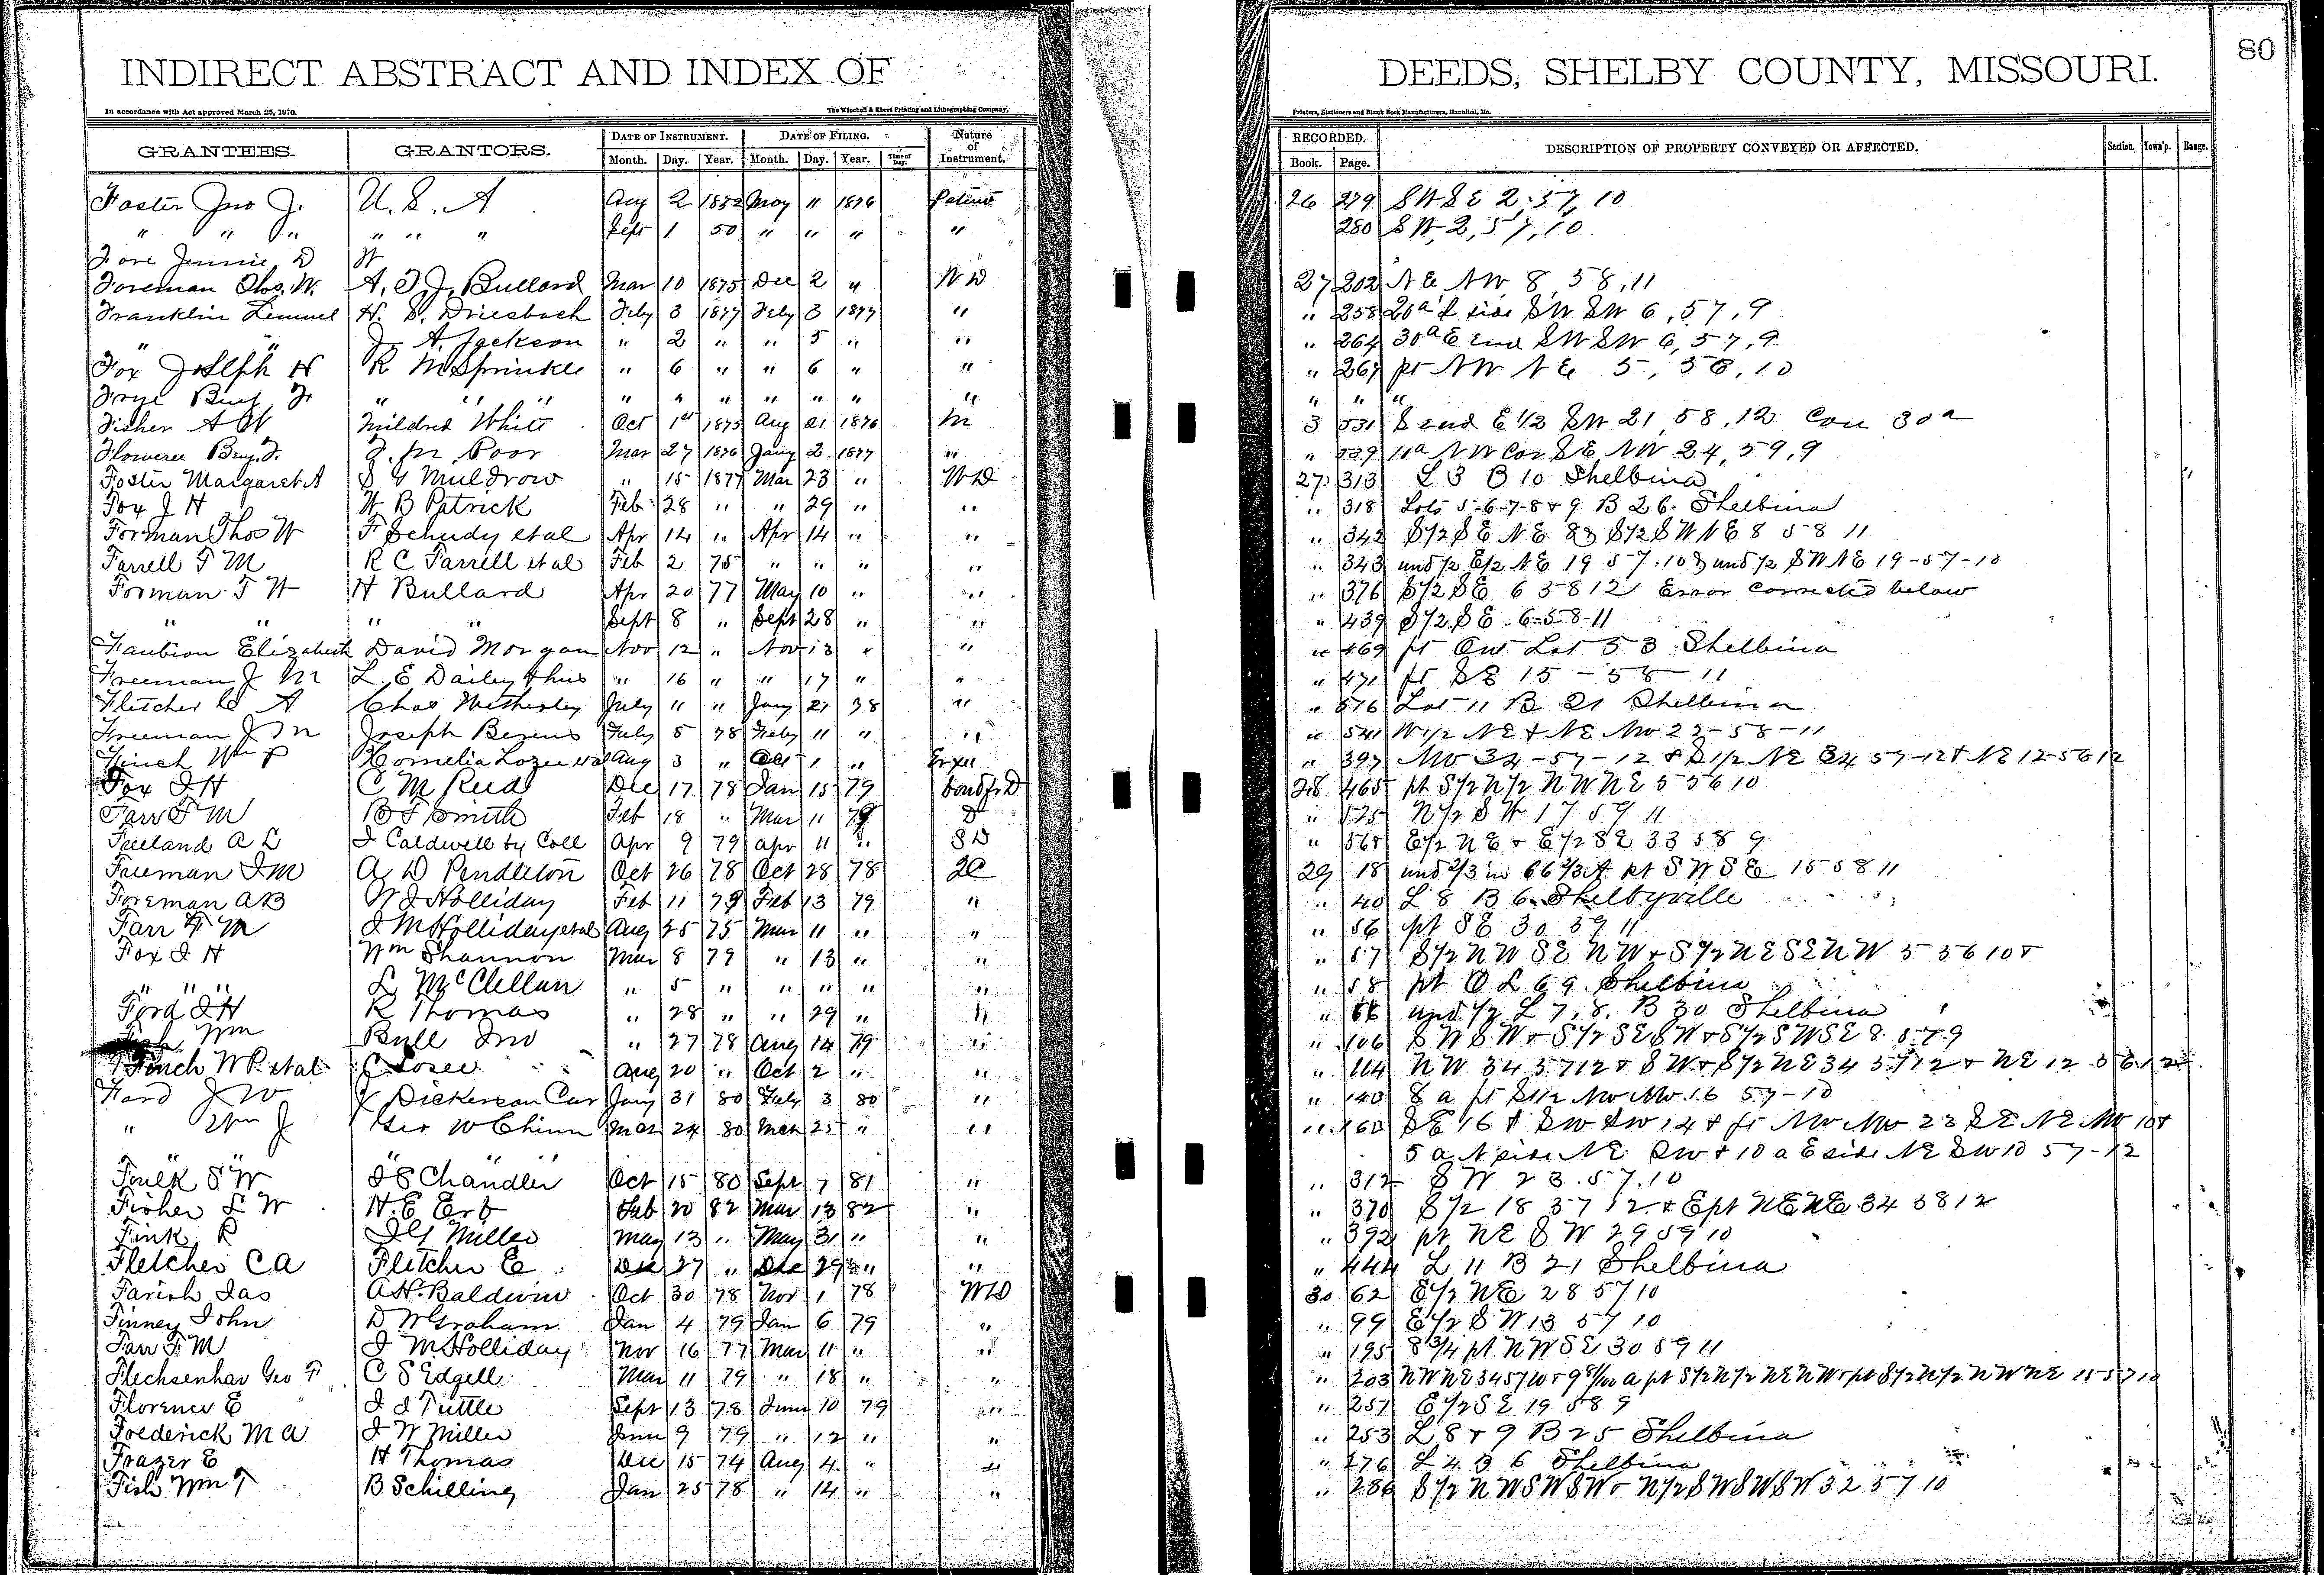 INDIRECT ABSTRACT AND INDEX OF DEEDS, SHELBY COUNTY, MISSOURI. 80
In accordance with Act approved March 25, 1870. The Winchell & Ebert Printing and Lithographing Company, Printers, Stationers and Blank Book Manufacturers, Hannibal, Mo.
GRANTEES. GRANTORS. DATE OF INSTRUMENT. DATE OF FILING. Nature of Instrument. RECORDED. DESCRIPTION OF PROPERTY CONVEYED OR AFFECTED. Section. Town'p. Range.
Month. Day. Year. Month. Day. Year. Time of Day. Book. Page.
Foster Jno J. U. S. A Aug 2 1852 May " 1876 Patent 26 279 SW SE 2, 57, 10
" " " " " " Sept 1 50 " " " " 280 SW, 2, 57, 10
Fore Jennie D W
Foreman Thos. W. A. T. J. Bullard Mar 10 1875 Dec 2 " W D 27 202 N E NW 8, 58, 11
Franklin Lemuel H. S. Driesbach Feby 3 1877 Feby 3 1877 " " 258 20a side SW SW 6, 57, 9
" " J. A. Jackson " 2 " " 5 " " " 264 30a E end SW SW 6, 57, 9
Fox Joseph H R M Sprinkle " 6 " " 6 " " " 267 pt NW N E 5, 56, 10
Frye Benj F " " " " " " " " " " " " "
Fisher A W Mildred White Oct 1st 1875 Aug 21 1876 M 3 531 S end E 1/2 SW 21, 58, 12 Con 30a
Floweree Benj. F. F. M. Poor Mar 27 1876 Jany 2 1877 " " 539 10a NW Cor SE NW 24, 59, 9
Foster Margaret A S G Muldrow " 15 1877 Mar 23 " W D 27 313 L 3 B 10 Shelbina
Fox J H W B Patrick Feb 28 " " 29 " " " 318 Lots 5-6-7-8 & 9 B 26 Shelbina
Forman Thos W F Schudy et al Apr 14 " Apr 14 " " " 342 S1/2 SE NE & S1/2 SW NE 8 58 11
Farrell F M R C Farrell et al Feb 2 75 " " " " " 343 und 1/2 E1/2 NE 19 57. 10 & und 1/2 SW NE 19-57-10
Forman T W H Bullard Apr 20 77 May 10 " " " 376 S1/2 SE 6 58 12 Error corrected below
" " " " Sept 8 " Sept 28 " " " 439 S1/2 SE 6-58-11
Faubion Elizabeth David Morgan Nov 12 " Nov 13 " " " 469 pt Out Lot 53 Shelbina
Freeman J M L. E Dailey & hus " 16 " " 17 " " " 471 pt SE 15 - 58 - 11
Fletcher C A Chas Wetherley July 11 " Jany 21 78 " " 576 Lot 11 B 21 Shelbina
Freeman J M Joseph Feby 5 78 Feby 11 " " " 541 W1/2 NE & NE NW 22-58-11
Finch Wm P Cornelia Lozee et al Aug 3 " Oct 1 " " 397 NW 34-57-12 & S1/2 NE 34 57-12 & NE 12-56 12
Fox J H C M Reed Dec 17 78 Jan 15 79 bond fr D 28 465 pt S1/2 N1/2 NW NE 5 56 10
Farr F M B F Smith Feb 18 " Mar 11 79 D " 525 N1/2 SW 17 59 11
Freeland A L J Caldwell by Coll Apr 9 79 Apr 11 " S D " 568 E1/2 NE & E1/2 SE 33 58 9
Freeman J M A D Pendleton Oct 26 78 Oct 28 78 2C 29 18 und 2/3 in 66 2/3 A pt SW SE 15 58 11
Foreman A B W J Holliday Feb 11 79 Feb 13 79 " " 40 L 8 B 6 Shelbyville
Farr F M J M Holliday et al Aug 25 75 Mar 11 " " " 56 pt SE 30 59 11
Fox J H Wm Shannon Mar 8 79 " 13 " " " 57 S1/2 NW SE NW & S1/2 NE SE NW 5 56 10 &
" " " L McClellan " 5 " " " " " " 58 pt O L 69 Shelbina
Ford J H R Thomas " 28 " " 29 " " " 66 und 1/2 L 7, 8, B 30 Shelbina
Fish Wm Bull Jno " 27 78 Aug 14 79 " " 106 SW SW & S1/2 SE SW & S1/2 SW SE 8 57 9
Finch W P et al C Losee Aug 20 " Oct 2 " " " 114 NW 34 57 12 & SW & S1/2 NE 34 57 12 & NE 12 56 12
Ford J W J Dickerson Cur Jany 31 80 Feby 3 80 " " 143 8 a pt S1/2 NW NW 16 57-10
" Wm J Geo W Chinn Mar 24 80 Mar 25 " " " 160 SE 16 & SW SW 14 & pt NW NW 23 SE NE NW 10 &
" " " " 5 a N side NE SW & 10 a E side NE SW 10 57-12
Foulk S W J S Chandler Oct 15 80 Sept 7 81 " " 312 SW 23. 57. 10
Fisher S W H. E Erb Feb 20 82 Mar 13 82 " " 370 S1/2 18 57 12 & E pt NE NE 34 58 12
Fink R J G Miller May 13 " May 31 " " " 392 pt NE SW 29 59 10
Fletcher C A Fletcher E Dec 27 " Dec 29 " " " 444 L 11 B 21 Shelbina
Farish Jas A H. Baldwin Oct 30 78 Nov 1 78 W D 30 62 E1/2 NE 28 57 10
Finney John D W Graham Jan 4 79 Jan 6 79 " " 99 E1/2 SW 13 57 10
Farr F M J M Holliday Nov 16 77 Mar 11 " " " 195 8 3/4 pt NW SE 30 59 11
Flechsenhar Geo F C S Edgell Mar 11 79 " 18 " " " 203 NW NE 34 57 10 & 9 81/100 a pt S1/2 N1/2 NE NW & pt S1/2 N1/2 NW NE 15 57 10
Florence E J J Tuttle Sept 13 78 June 10 79 " " 251 E1/2 SE 19 58 9
Frederick M A J W Miller June 9 79 " 12 " " " 253 L 8 & 9 B 25 Shelbina
Frazer E H Thomas Dec 15 74 Aug 4 " " " 276 L 4 B 6 Shelbina
Fish Wm T B Schilling Jan 25 78 " 14 " " " 286 S1/2 NW SW SW & N1/2 SW SW SW 32 57 10